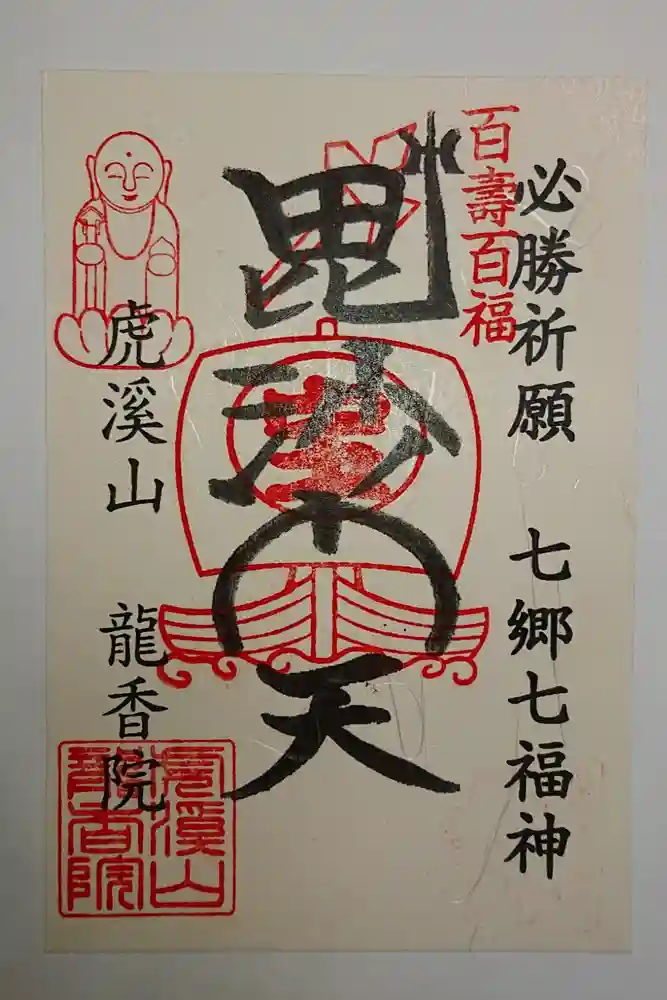 百壽百福
必勝祈願 七郷七福神
毘沙門天
虎溪山 龍香院
虎溪山
龍香院